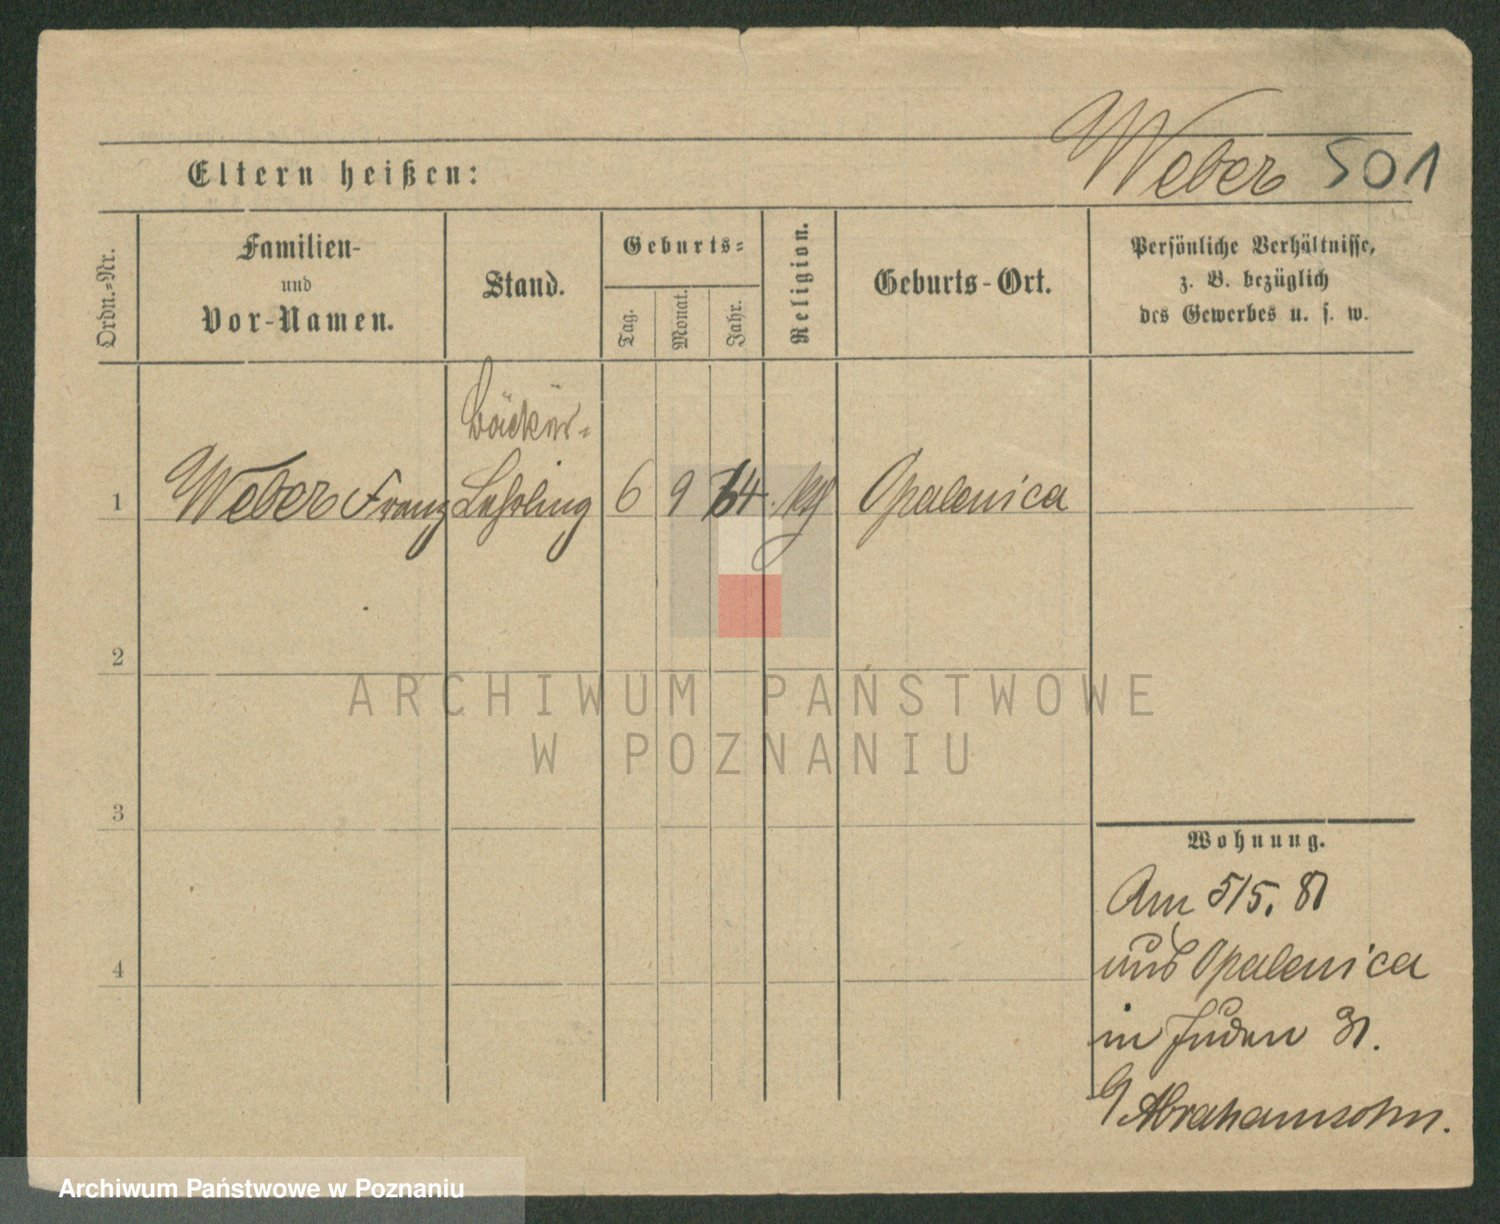 Weber 501
Eltern heißen:
Ordn.-Nr.
Familien-
und
Vor-Namen.
Stand.
Geburts-
Tag.
Monat.
Jahr.
Religion.
Geburts-Ort.
Persönliche Verhältnisse,
z. B. bezüglich
des Gewerbes u. s. w.
Bäcker-
1 Weber Franz Lehrling 6 9 64 Opalenica
2
ARCHIWUM PAŃSTWOWE
W POZNANIU
3
Wohnung.
Am 5/5. 81
aus Opalenica
in Juden 31.
Abrahamsohn.
4
Archiwum Państwowe w Poznaniu